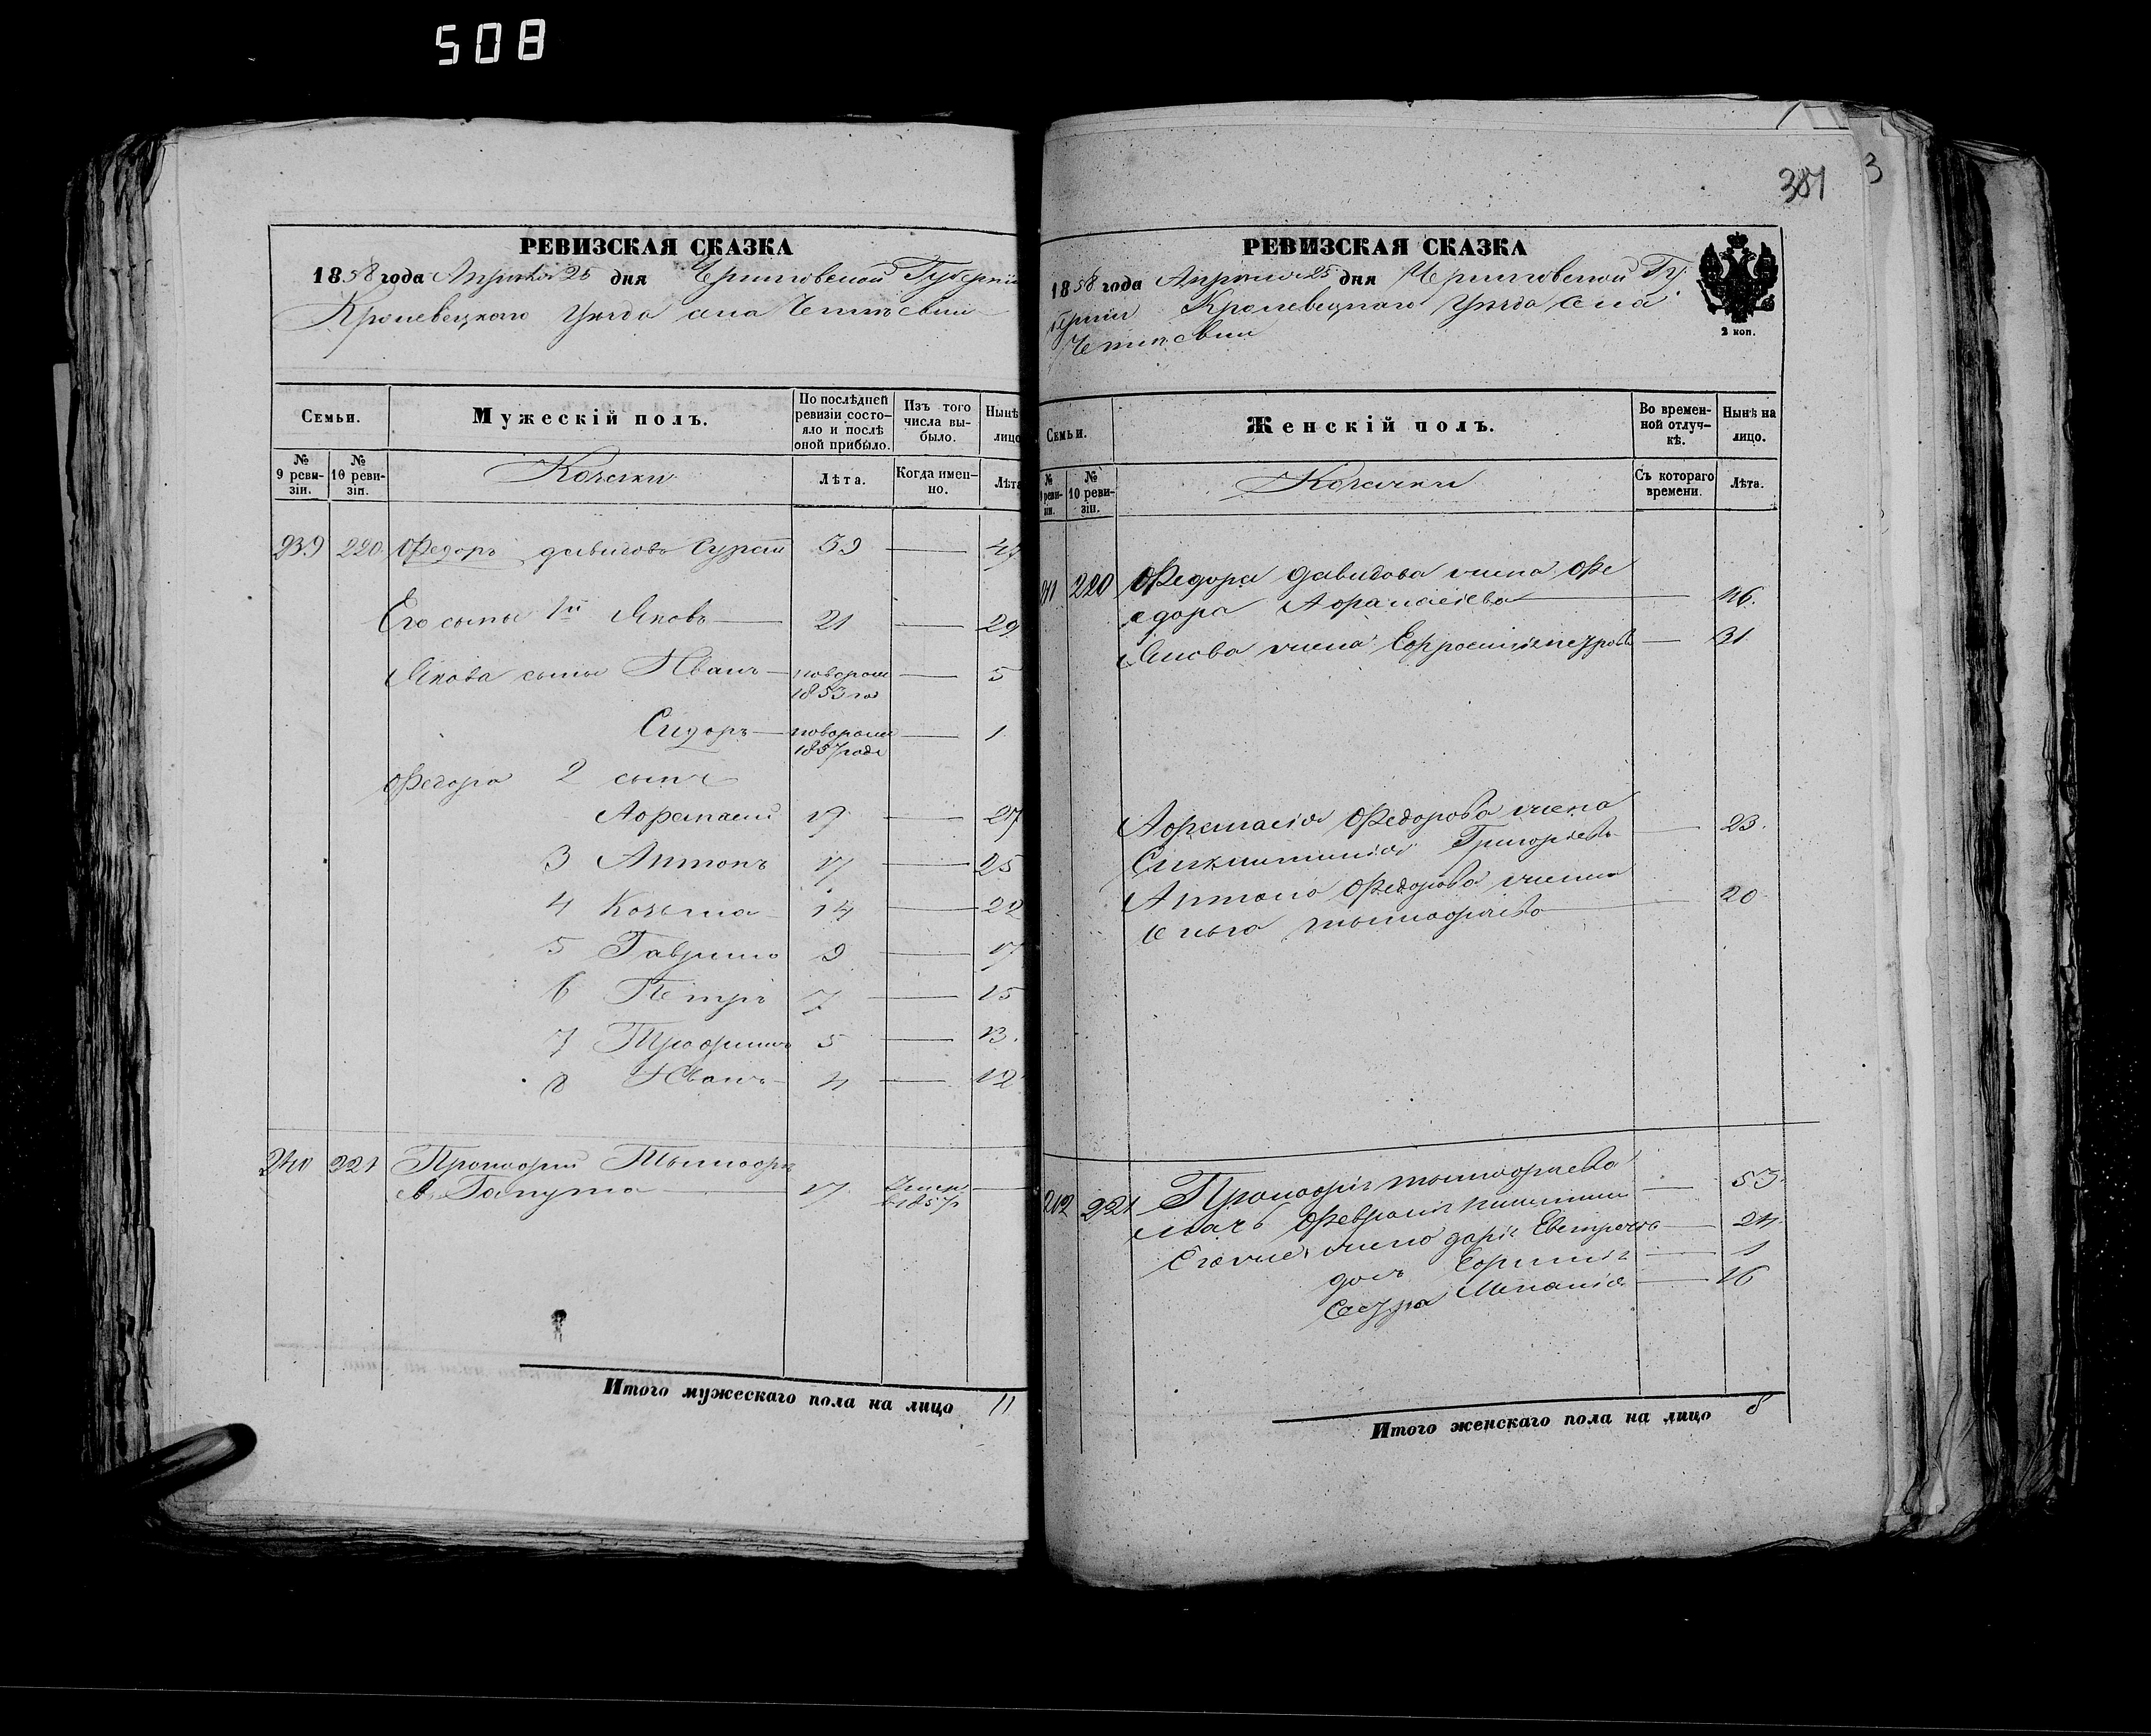 508
РЕВИЗСКАЯ СКАЗКА
1858 года Апреля 25 дня Черниговской Губернии
Кролевецкаго Уезда села
Семьи.
Мужескій полъ.
По послѣдней ревизіи состо-
яло и послѣ оной прибыло.
Изъ того числа вы-
было.
Нынѣ
лицо
№ 9 реви-
зіи.
№ 10 реви-
зіи.
Козаки
Лѣта.
Когда имен-
но.
Лѣта
239 220 Федоръ давидовъ 39 — 47
Его сыны 1й Яковъ — 21 — 29
Якова сыны Иванъ — новорож 1853 год — 5
Сидоръ — новорож 1857 года — 1
Федора 2 сынъ
Афанасий 19 — 27
3 Антонъ 17 — 25
4 Козьма 14 — 22
5 Гаврило 9 — 17
6 Петръ 7 — 15
7 Трофимъ 5 — 13.
8 Иванъ 4 — 12
240 221 Прокофий Тымофе
евъ — 17 Умер в 1857 —
Итого мужескаго пола на лицо 11
381
3
РЕВИЗСКАЯ СКАЗКА
1858 года Апреля 25 дня Черниговской Гу
берніи Кролевецкаго Уезда села
2 коп.
Семьи.
Женскій полъ.
Во времен-
ной отлуч-
кѣ.
Нынѣ на
лицо.
№ реви-
зіи.
№ 10 реви-
зіи.
Козачки
Съ котораго
времени.
Лѣта.
220 Федора давидова жена Фе
одора Афанасіева — 46.
Якова жена Ефросинія петрова — 31
Афанасія Федорова жена
Григоріева — 23.
Антона Федорова жена
тымофеева — 20
212 221 Прокофія тымофеева
мать Феврония — 53.
Его же жена дарія — 24.
дочь — 1
сестра — 16
Итого женскаго пола на лицо 8